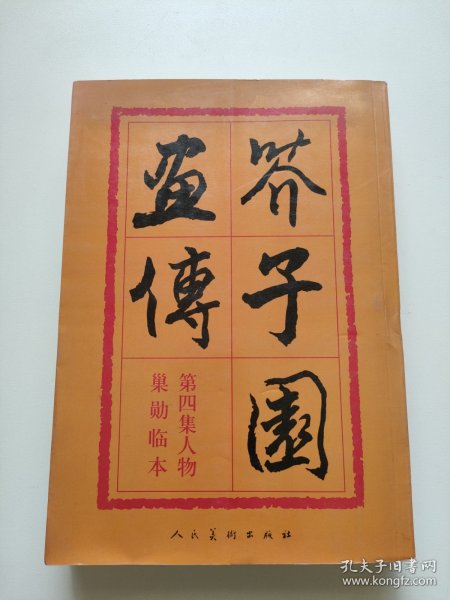 芥子園
畫傳
第四集人物
巢勋临本
人民美術出版社
孔夫子旧书网
www.kongfz.com